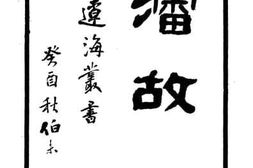 瀋故
遼海叢書
癸酉秋伯